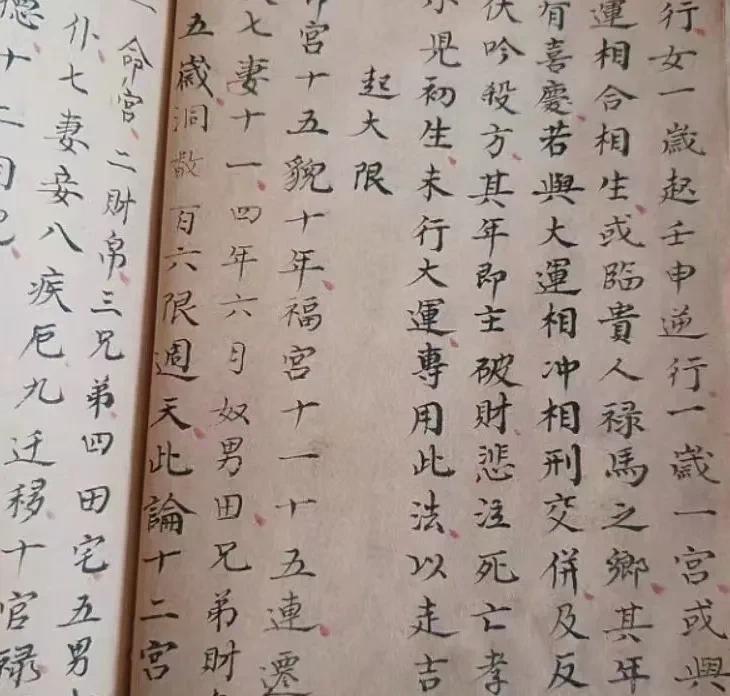 行女一歲起壬申逆行一歲一宮或與
運相合相生或臨貴人禄馬之鄉其年
有喜慶若與大運相冲相刑交併及反
伏吟殺方其年即主破財悲泣死亡孝
小児初生未行大運專用此法以走吉
起大限
命宮十五貌十年福宮十一十五連遷
七妻十一四年六月奴男田兄弟財
五歲洞散百六限週天此論十二宮
命宮二財帛三兄弟四田宅五男
仆七妻妾八疾厄九迁移十官禄
德十二